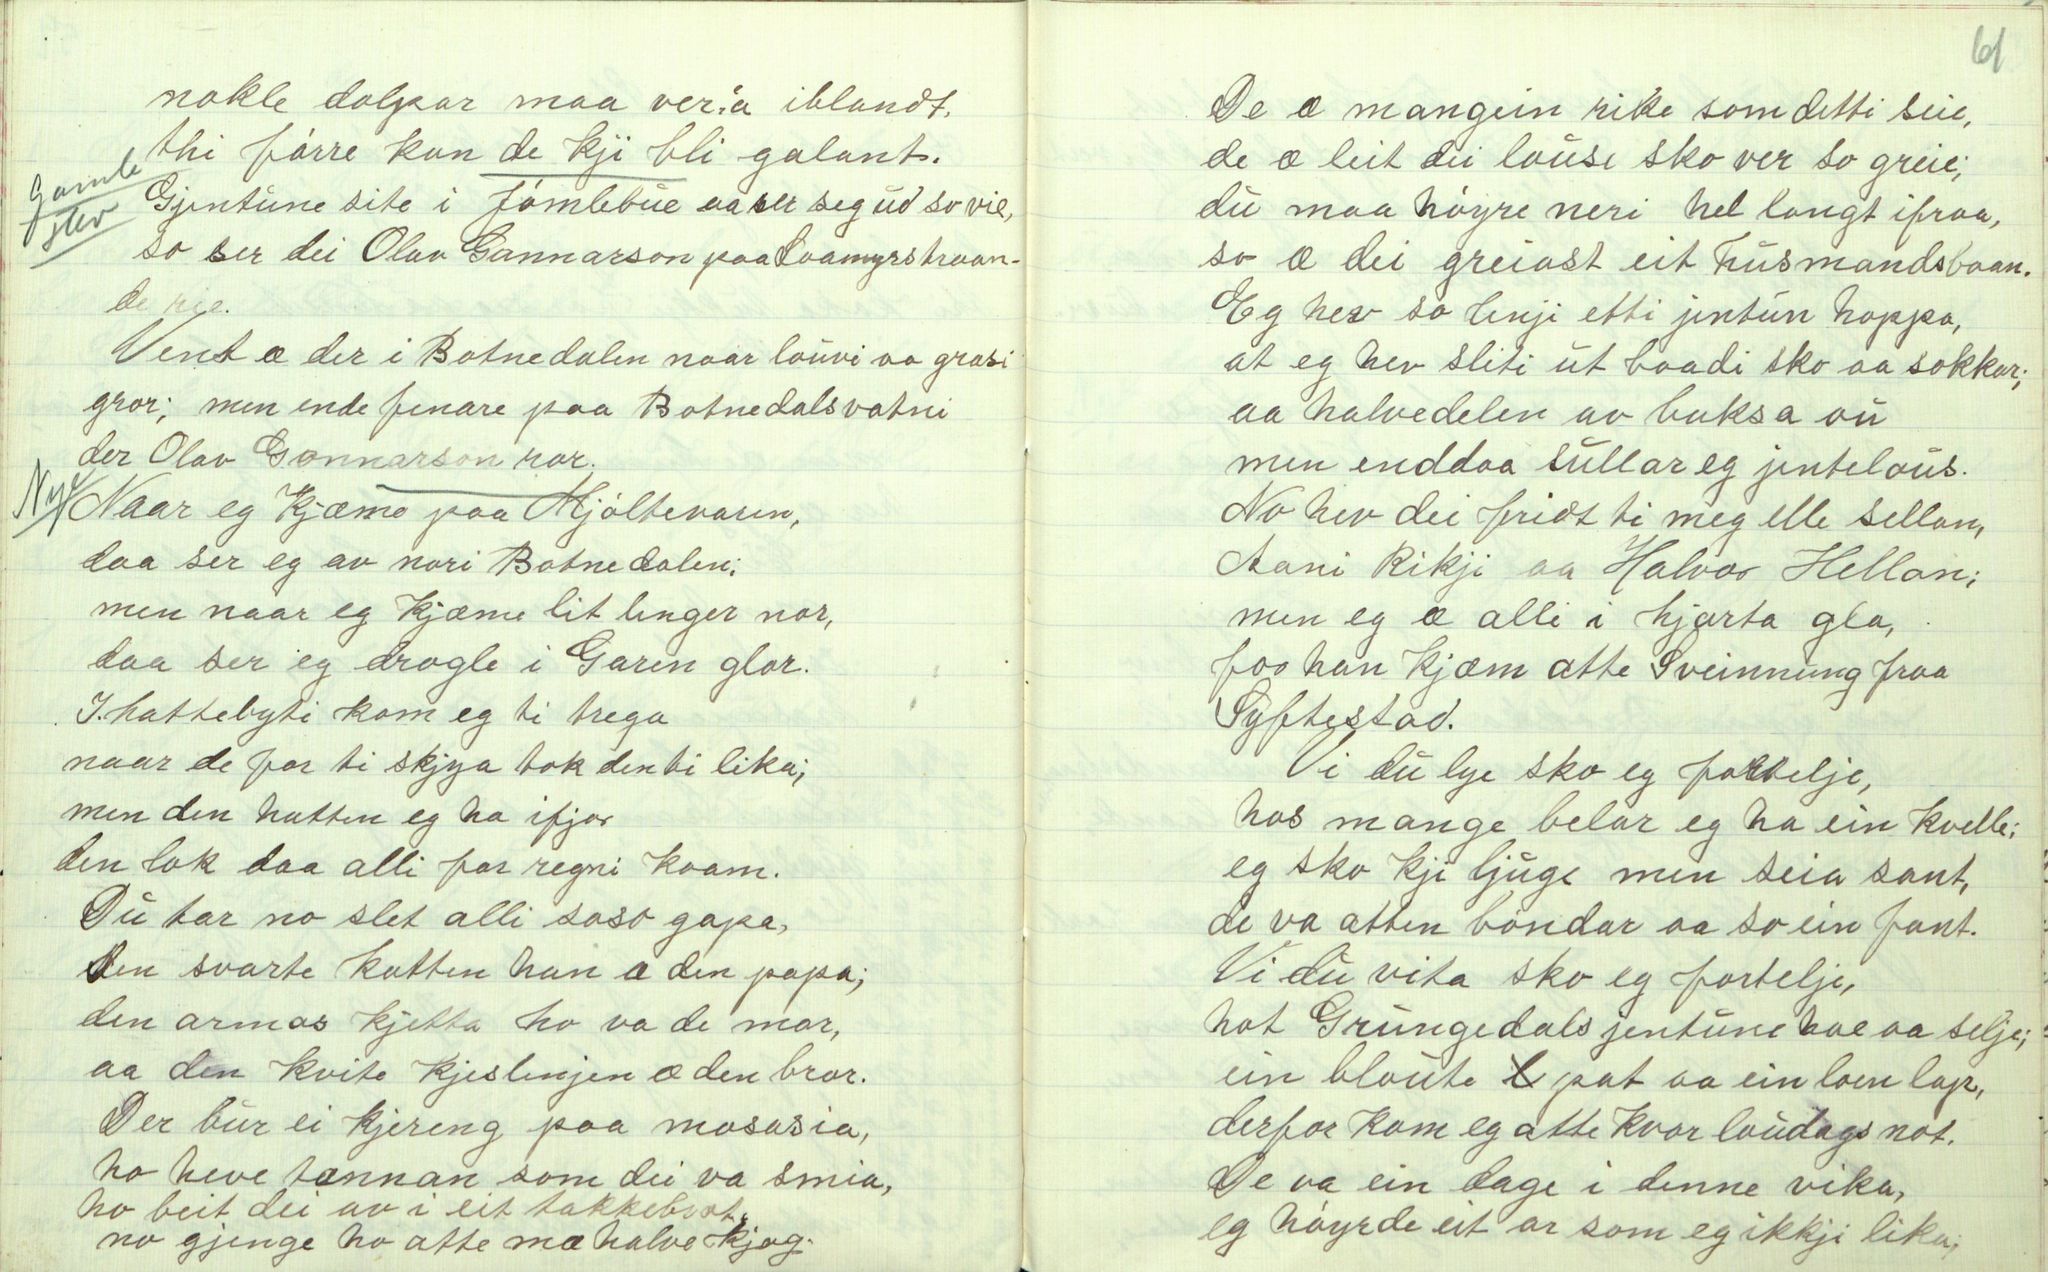 nokle dolpar maa ver:a iblandt,
thi fárre kan de kji bli galant.
Gamle stev
Gjentúne site i Jómlebúe aa ser seg úd so vie,
so ser dei Olav Gannarson paa Loamyrstraan-
de rie.
Vent æ der i Botnedalen naar loúvi aa grasi
gror; men ende fenare paa Botnedalsvatni
der Olav Gonnarson ror.
Nye
Naar eg kjæme paa Mjóltevaren,
daa ser eg av nori Botnedalen;
men naar eg kjæme lit lenger nor,
daa ser eg drogle i Garen glor.
I. hattebyti kom eg ti trega
naar de for ti skjya tok den ti lika;
men den hatten eg ha ifjor
den lok daa alli for regni kvam.
Dú tar no slet alli soso gapa,
den svarte katten han æ den papa;
den armas kjetta ho va de mor,
aa den kvite kjeslinjen æ den bror.
Der búr ei kjereng paa mosasia,
ho heve tænnan som dei va smia,
ho beit dei av i eit takkebrot,
no gjenge ho atte mæ halve kjog.
61
De æ mangein rike som detti seie,
de æ leit dei loúse sko ver so greie;
dú maa hóyre neri hel langt ifraa,
so æ dei greiast eit húsmandsbaan.
Eg hev so lenji etti jentún hoppa,
at eg hev sliti út baadi sko aa sokkar;
aa halvedelen av buksa oú
men enddaa súllar eg jenteloús.
No hev dei fridt ti meg elle sellan,
Aani Rikji aa Halvor Hellan;
men eg æ alli i hjarta gla,
for han kjæm atte Sveinnúng fraa
Syftestad.
Vi dú lye sko eg fortelje,
hos mange belar eg ha ein kvelle;
eg sko kji ljúge men seia sant,
de va atten bóndar aa so ein fant.
Vi dú vita sko eg fortelje,
hot Grúngedalsjentúne hae aa selje;
ein bloúte pat aa ein loen lap,
derfor kom eg atte kvor loúdags not.
De va ein dage i denne vika,
eg hóyrde eit or som eg ikkji lika;